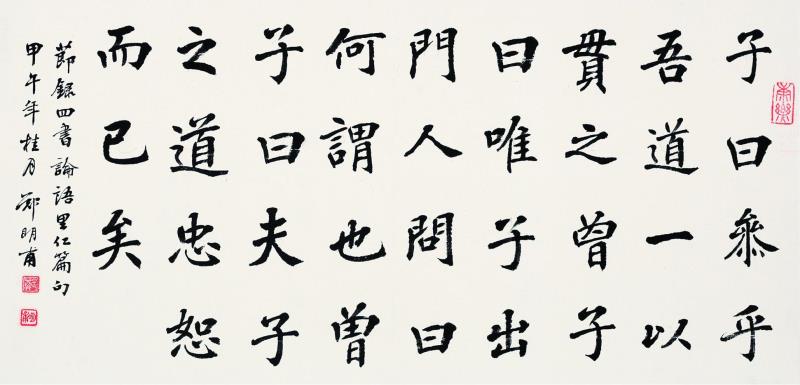 子曰參乎
吾道一以
貫之曾子
曰唯子出
門人問曰
何謂也曾
子曰夫子
之道忠恕
而已矣
節錄四書論語里仁篇句
甲午年桂月鄭明甫